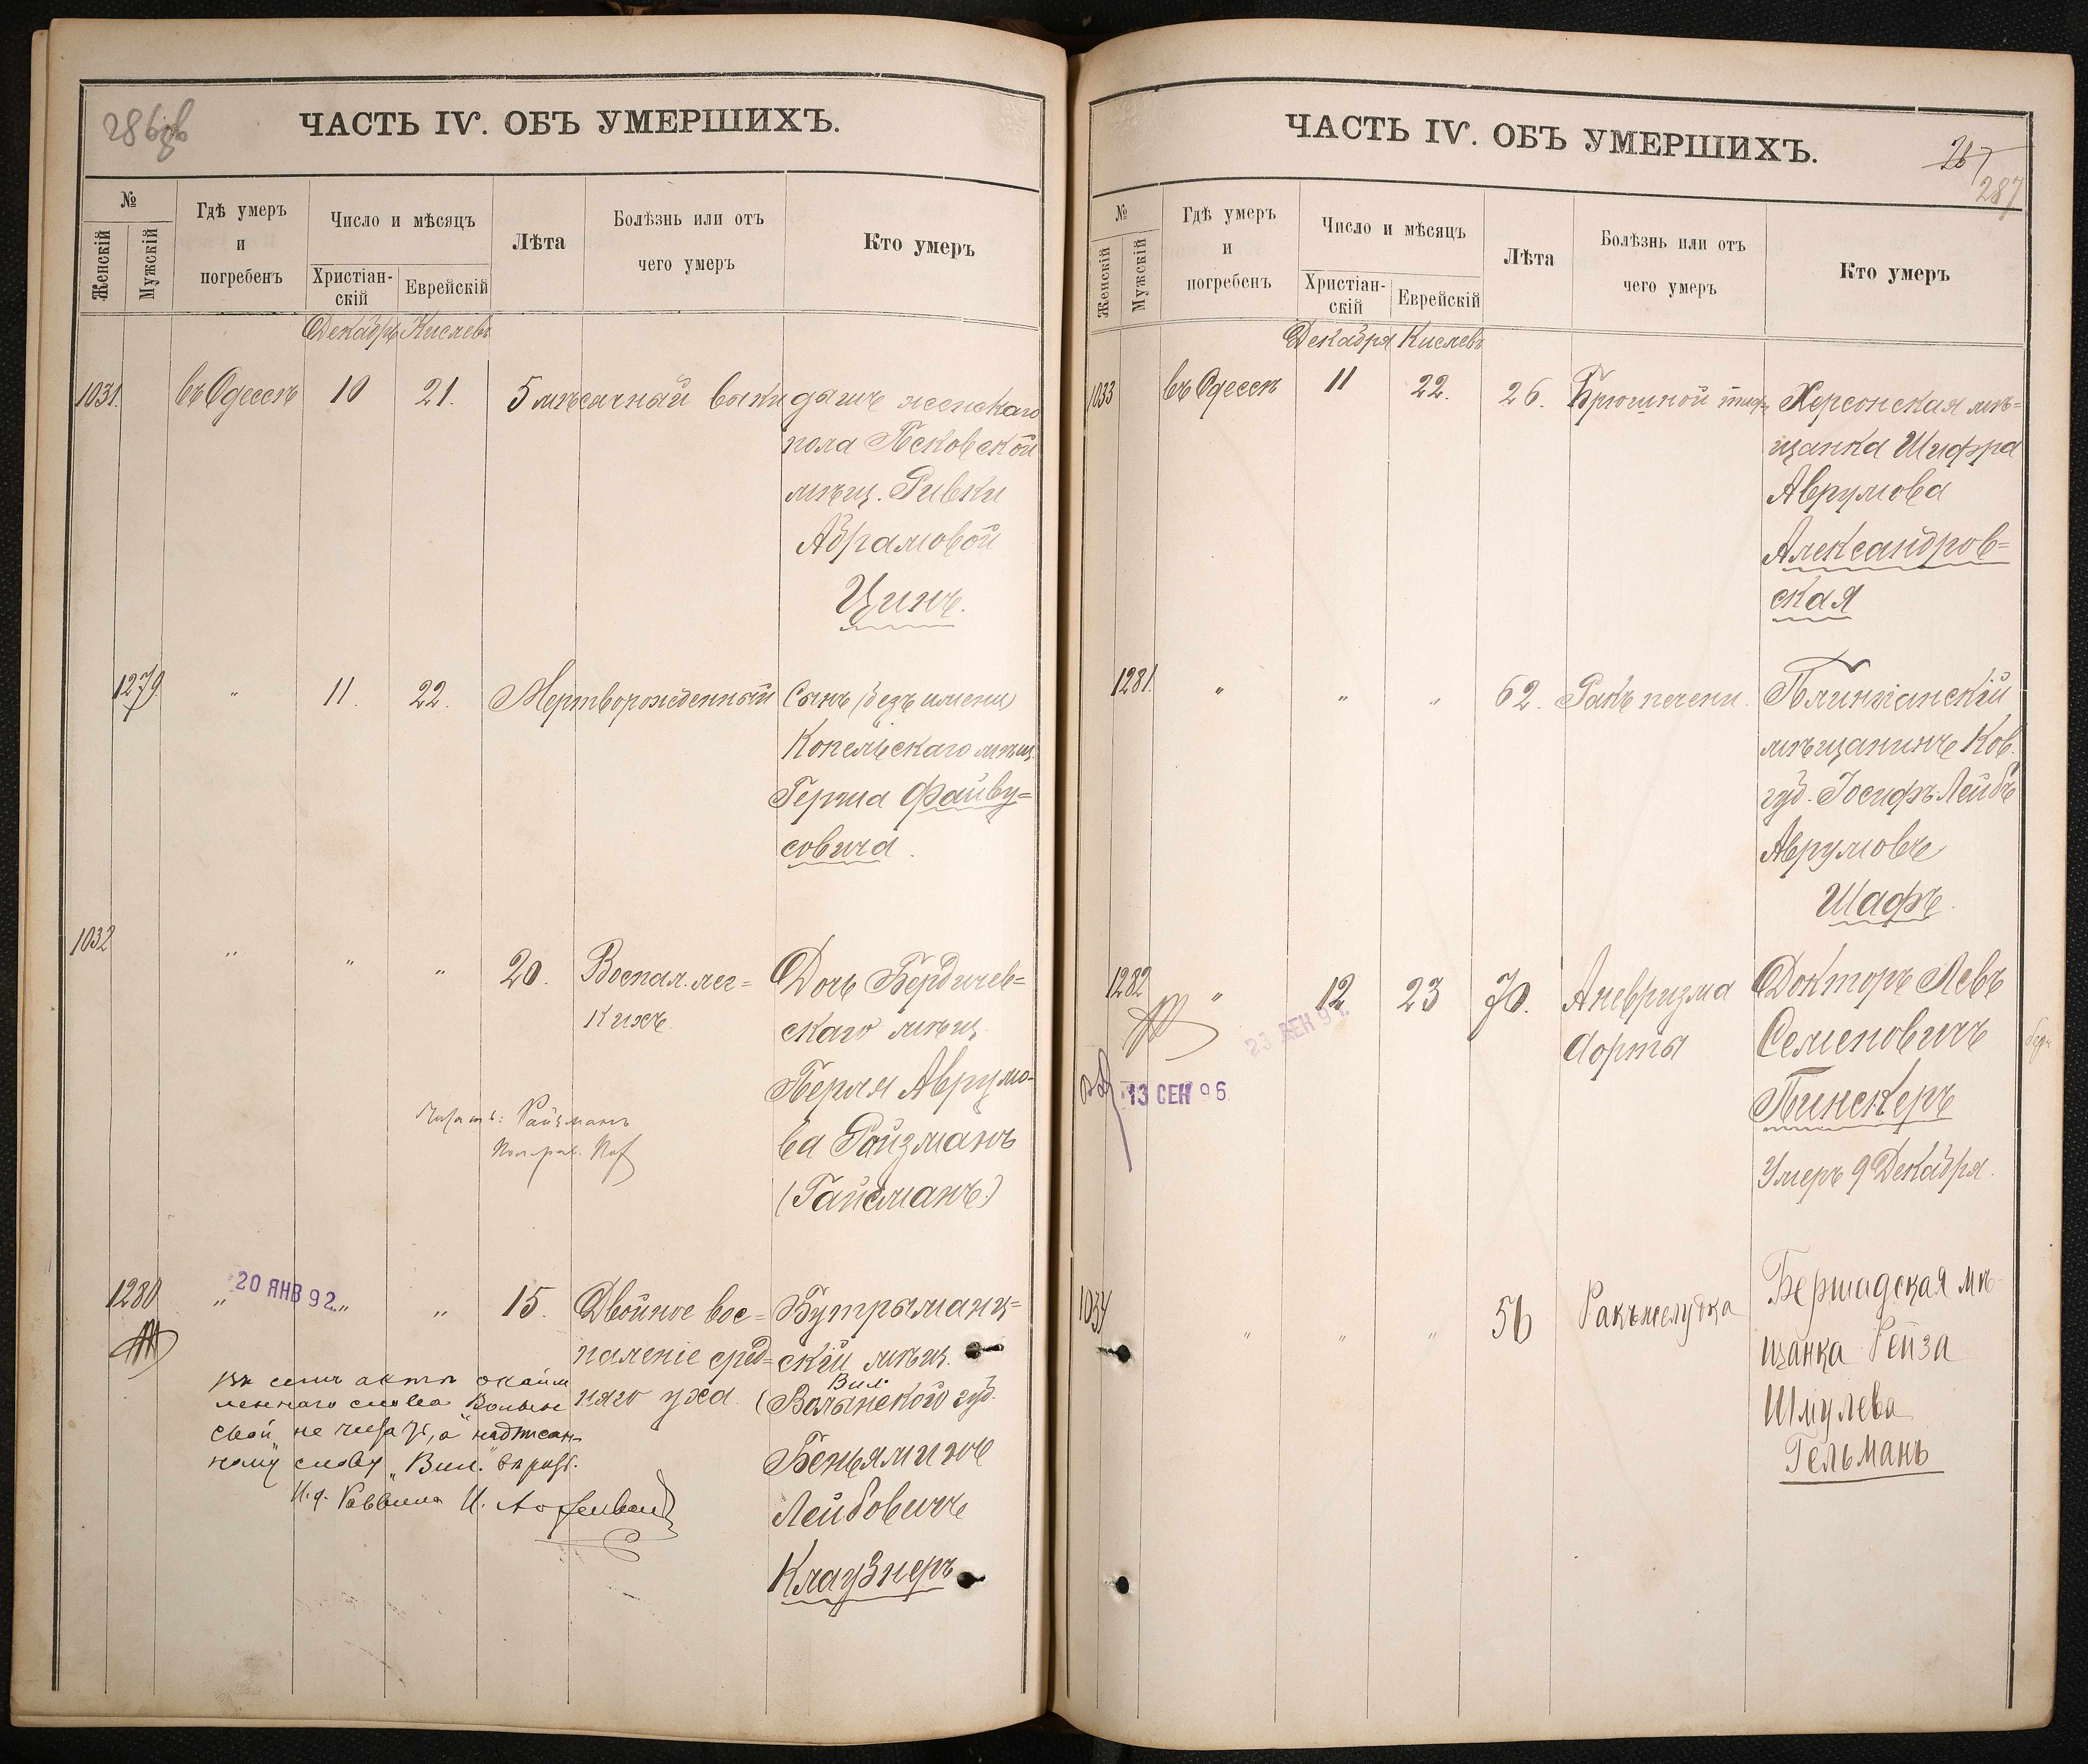 286 об
ЧАСТЬ IV. ОБЪ УМЕРШИХЪ.
№
Женскій
Мужскій
Гдѣ умеръ
и
погребенъ
Число и мѣсяцъ
Христіан-
скій
Еврейскій
Лѣта
Болѣзнь или отъ
чего умеръ
Кто умеръ
Декабрь Кислевъ
1031. въ Одессѣ 10 21. 5 мѣсячный выкидышъ женскаго
пола Псковской
мѣщ. Ривки
Абрамовой
Цинъ.
1279. " 11. 22. Мертворожденный Сынъ (безъ имени)
Копельскаго мѣщ.
Герша Файву=
совича.
1032 " " " 20. Воспал. лег= Дочь Бердичев=
кихъ скаго мѣщ.
Берля Аврумо-
ва Ройзманъ
(Гайсманъ)
Читать: Райзманъ
1280 " 20 ЯНВ 92 " " 15. Двойное вос= Бутрыманц=
паленіе сред= скій мѣщ.
няго уха. (Волынского губ.
Вил.
Беньяминъ
Лейбовичъ
Клаузнеръ
Въ семъ актѣ окайм
леннаго слова Волын
ской не читать, а надписан-
ному слову „Вил." вѣрить.
И.д. Раввина И.
ЧАСТЬ IV. ОБЪ УМЕРШИХЪ.
267
287
№
Женскій
Мужскій
Гдѣ умеръ
и
погребенъ
Число и мѣсяцъ
Христіан-
скій
Еврейскій
Лѣта
Болѣзнь или отъ
чего умеръ
Кто умеръ
Декабря Кислевъ
1033 въ Одессѣ 11 22. 26. Брюшной тифъ Херсонская мѣ=
щанка Шифра
Аврумова
Александров=
ская
1281. " " " 62. Ракъ печени. Плинянскій
мѣщанинъ Ков.
губ. Іосифъ-Лейбъ
Аврумовъ
Шафъ.
1282 " 12 23 70. Аневризма Докторъ Левъ
аорты Семеновичъ
Пинскеръ
Умеръ 9 Декабря.
23 ДЕН 9
13 СЕН 96
1034 " " " 56 Ракъ желудка Бершадская мѣ-
щанка Рейза
Шмулева
Гельманъ